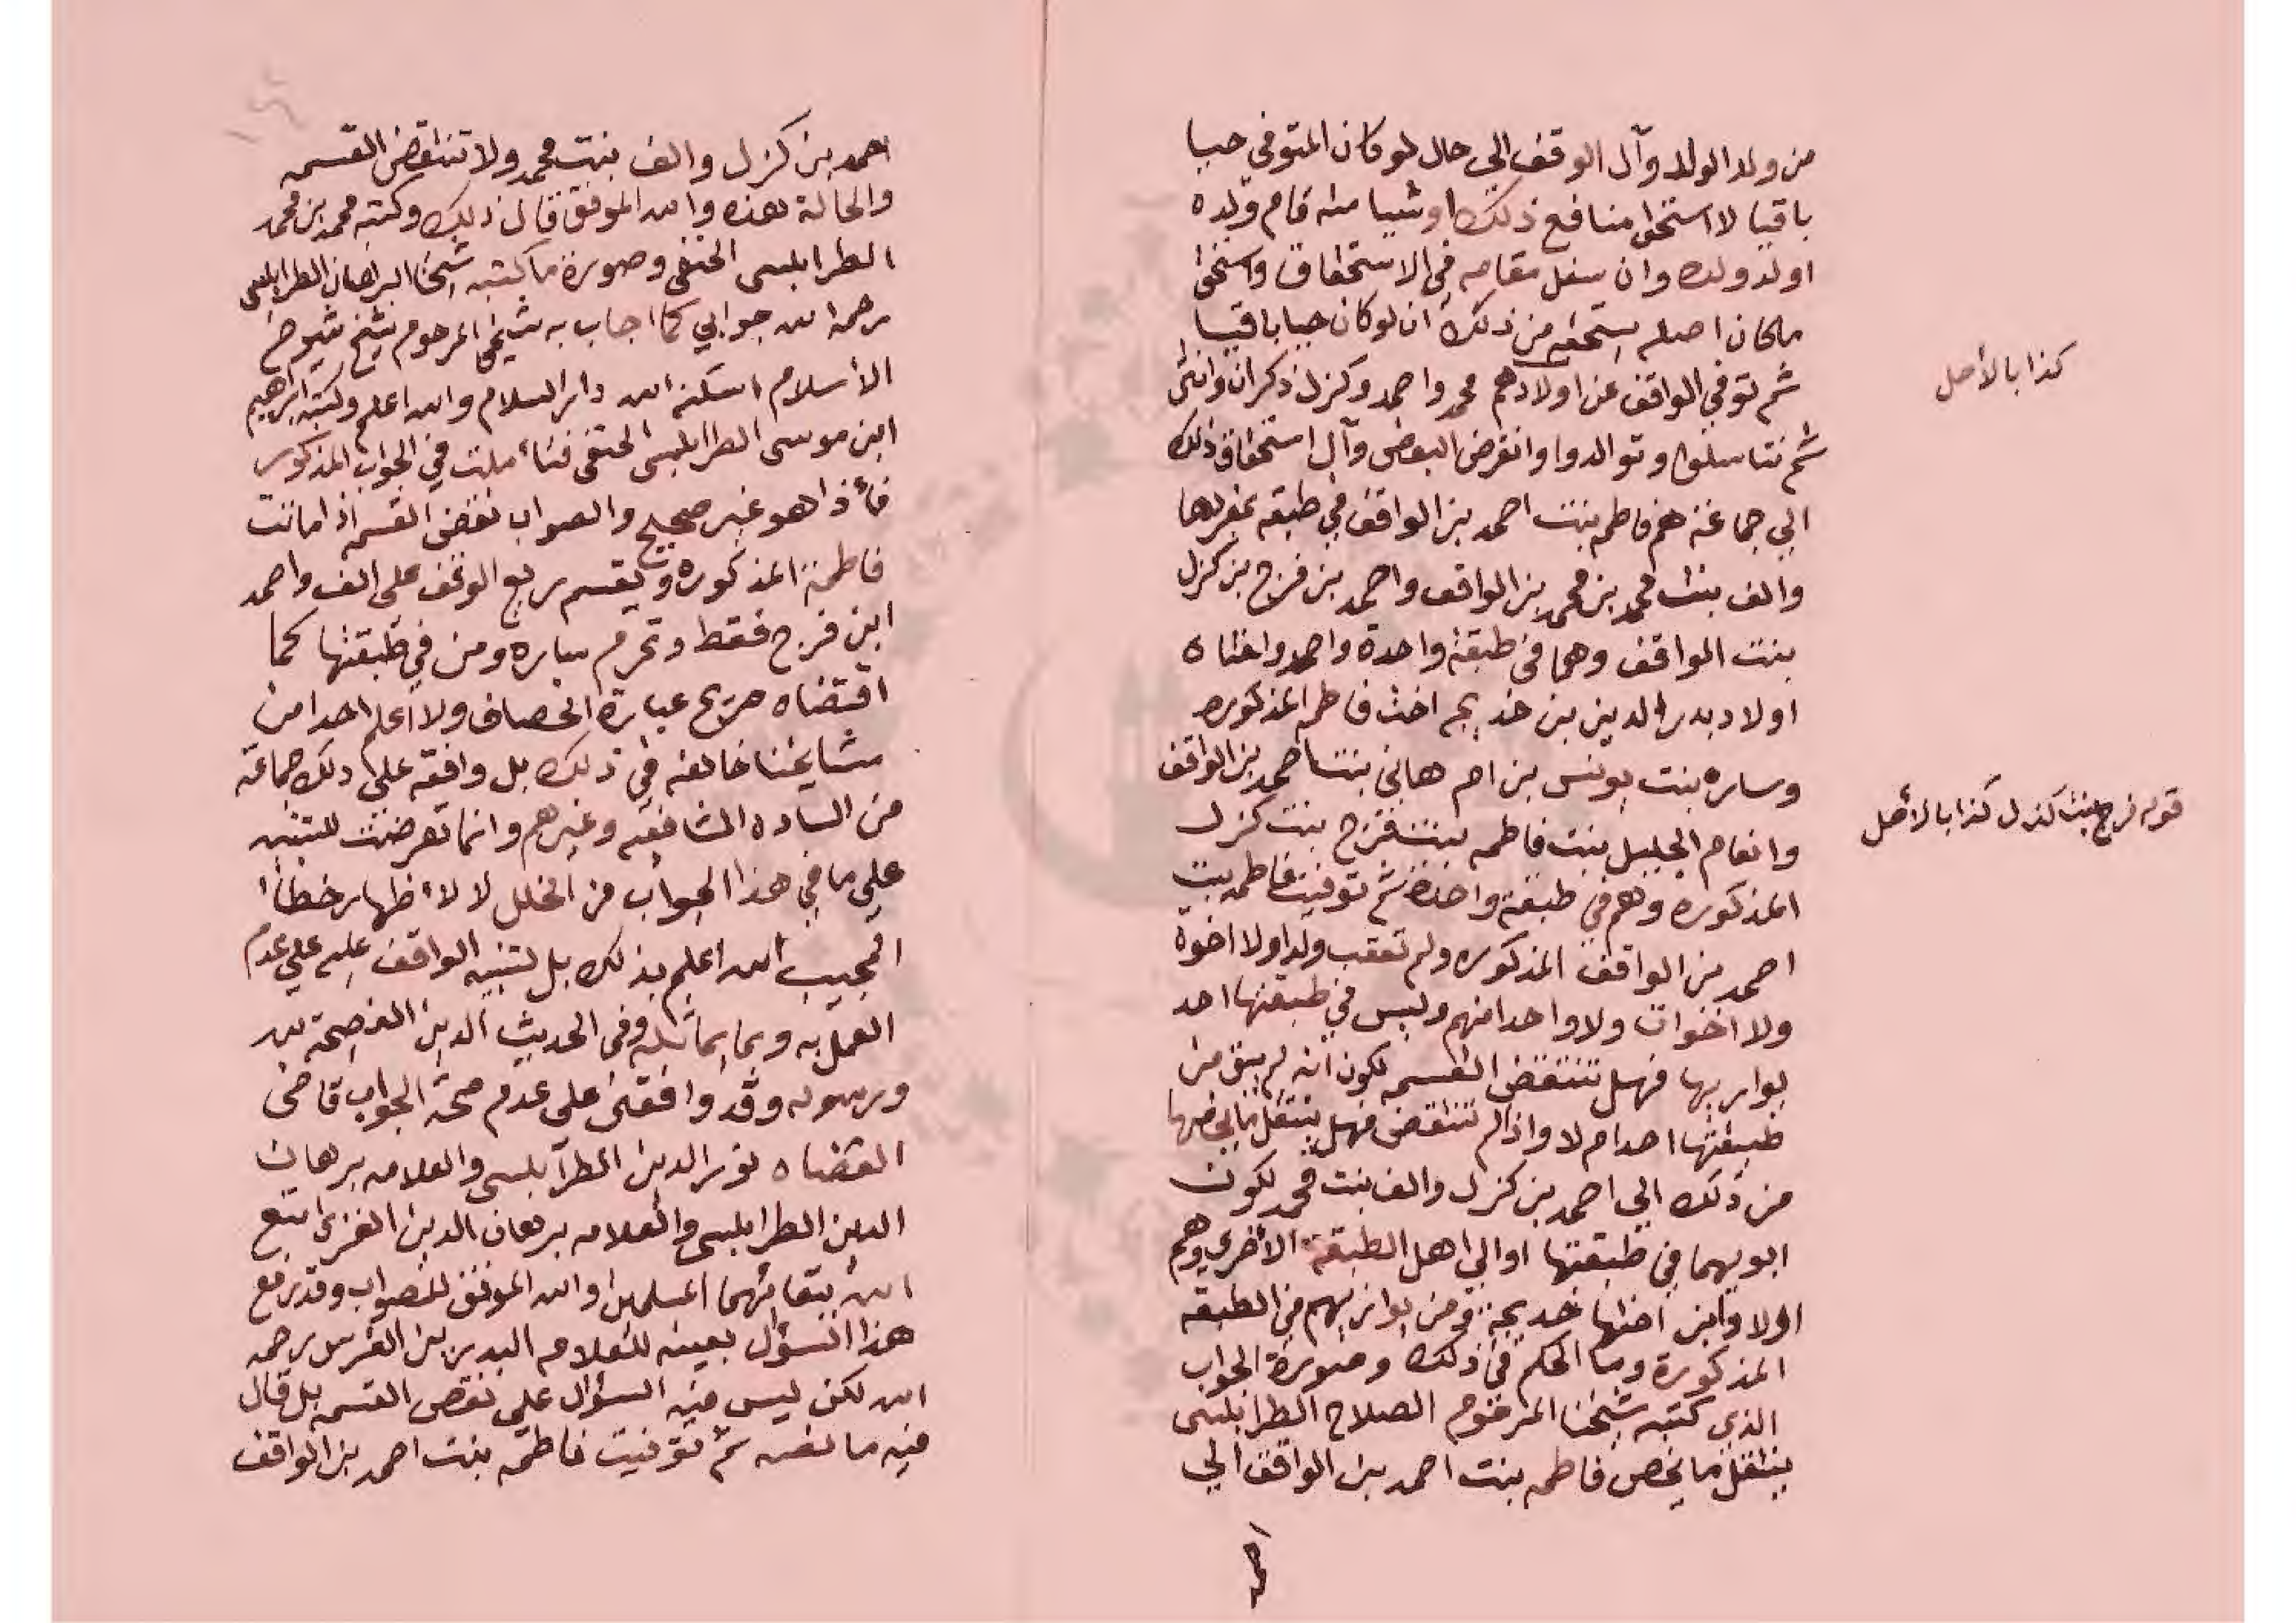 من ولد الولد وآل الوقف الي حال لو كان المتوفي حيا
باقيا لاستحق منافع ذلك او شيا منه قام ولده
او ولد ولده وان سفل مقامه في الاستحقاق واستحق
ما كان اصله يستحقه من ذلك أن لو كان حيا باقيا
ثم توفي الواقف عن اولاد هم محمد واحمد وكزل ذكران وانثى
ثم تناسلوا وتوالدوا وانقرض البعض وآل استحقاق ذلك
الي جماعة هم فاطمه بنت احمد بن الواقف في طبقه بمفردها
والف بنت محمد بن محمد بن الواقف واحمد بن فرج بن كزل
بنت الواقف وهما في طبقة واحدة واحمد واختاه
اولاد بدر الدين بن خديجه اخت فاطمه المذكوره
وساره بنت يونس بن ام هاني بنت احمد بن الواقف
وانعام الجليل بنت فاطمه بنت فرج بنت كزل
المذكوره وهم في طبقة واحدة ثم توفيت فاطمه بنت
احمد بن الواقف المذكوره ولم تعقب ولدا ولا اخوة
ولا اخوات ولا واحدا منهم وليس في طبقتها احد
يوازيها فهل تنتقض القسمه لكون انه لم يبق من
طبقتها احد ام لا واذا لم تنتقض فهل ينتقل ما يخصها
من ذلك الي احمد بن كزل والف بنت محمد لكون
ابويهما في طبقتها او الي اهل الطبقة الأخرى وهم
اولاد ابن اختها خديجة ومن يوازيهم من الطبقه
المذكورة وما الحكم في ذلك وصورة الجواب
الذي كتبه شيخنا المرحوم الصلاح الطرابلسى
ينتقل ما يخص فاطمه بنت احمد بن الواقف الي
احمد
كذا بالأصل
قوله فرج بنت كزل كذا بالأصل
احمد بن كزل والف بنت محمد ولا تنتقض القسمه
والحالة هذه والله الموفق قال ذلك وكتبه محمد بن محمد
الطرابلسى الحنفى وصورة ما كتبه شيخنا البرهان الطرابلسى
رحمه الله جوابي كما اجاب به شيخي المرحوم شيخ شيوخ
الأسلام اسكنه الله دار السلام والله اعلم وكتبه ابراهيم
ابن موسى الطرابلسى الحنفى فتأملت في الجواب المذكور
فأذا هو غير صحيح والصواب نقض القسمه اذا ماتت
فاطمة المذكوره ويقسم ريع الوقف على الف واحمد
ابن فرج فقط وتحرم ساره ومن في طبقتها كما
اقتضاه صريح عبارة الخصاف ولا اعلم احدا من
مشايخنا خالفه في ذلك بل وافقه على ذلك جماعة
من الساده الشافعيه وغيرهم وانما تعرضت للتنبيه
على ما في هذا الجواب من الخلل لا لأظهار خطأ
المجيب الله اعلم بذلك بل لتنبيه الواقف عليه علي عدم
العمل به وبما يماثله وفى الحديث الدين النصيحة لله
ورسوله وقد وافقنى على عدم صحة الجواب قاضى
القضاه نور الدين الطرابلسى والعلامه برهان
الدين الطرابلسى والعلامه برهان الدين الغزى امتع
الله ببقائهما المسلمين والله الموفق للصواب وقد رفع
هذا السؤال بعينه للعلامه البدر بن الغرس رحمه
الله لكن ليس فيه السؤال على نقض القسمه بل قال
فيه ما نصه ثم توفيت فاطمه بنت احمد بن الواقف